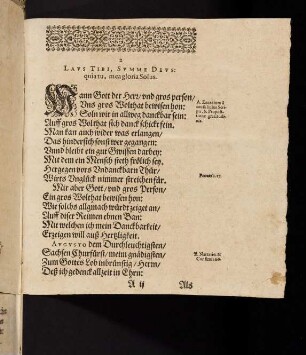 2
LAVS TIBI, SVMME DEVS:
quia tu, mea gloria Solus.
WAnn Gott der Herr/ vnd gros person/
Vns gros Wolthat bewisen hon:
Soln wir in allweg danckbar sein:
Auff gros Wolthat sich danck schickt fein.
Man kan auch wider was erlangen/
Das hindersich sonst wer gegangen:
Vnnd bleibt ein gut Gwissen darbey:
Mit dem ein Mensch stets frölich sey.
Hergegen vors Vndanckbarn Thür/
Würs Vnglück nimmer streichen für.
Mit aber Gott/ vnd gros Person/
Ein gros Wolthat bewisen hon:
Wie solchs allgmach würdt zeiget an/
Auff diser Reimen ebnen Ban:
Mit welchen ich mein Danckbarkeit/
Erzeigen will auß Hertzligkeit.
AVGVSTO dem Durchleuchtigsten/
Sachsen Churfürst/ meim gnädigsten/
Zum Gottes Lob inbrünstig/ Herrn/
Deß ich gedenck allzeit in Ehrn:
A ij
Als